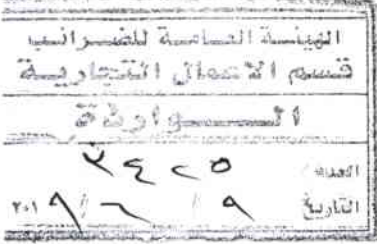 الهيئة العامة للضرائب
قسم الاعمال التجارية
الـــواردة
العدد / ٧٤٢٥
التاريخ ٩ / ٦ / ٢٠١٩